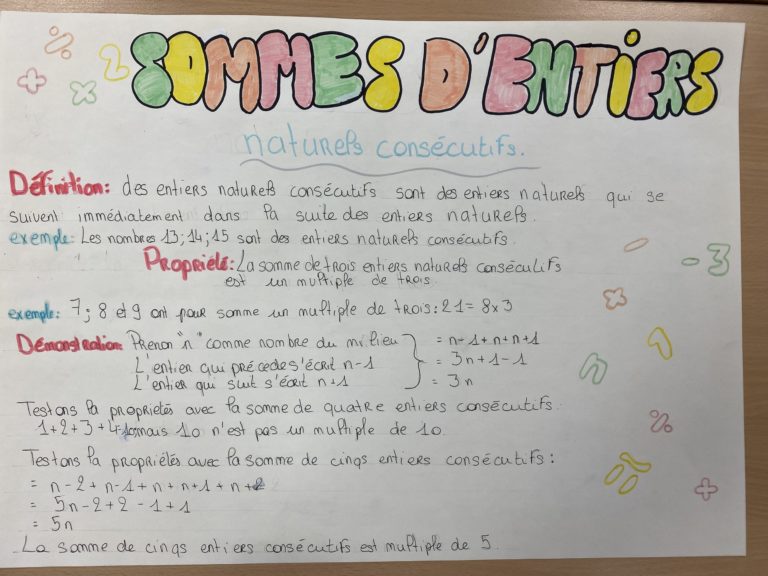 SOMMES D'ENTIERS
naturels consécutifs.
Définition: des entiers naturels consécutifs sont des entiers naturels qui se
suivent immédiatement dans la suite des entiers naturels.
exemple: Les nombres 13; 14; 15 sont des entiers naturels consécutifs.
Propriété: La somme de trois entiers naturels consécutifs
est un multiple de trois.
exemple: 7; 8 et 9 ont pour somme un multiple de trois: 21 = 8 x 3
Démonstration: Prenon "n" comme nombre du milieu = n-1+n+n+1
L'entier qui précede s'écrit n-1 = 3n+1-1
L'entier qui suit s'écrit n+1 = 3n
Testons la propriétés avec la somme de quatre entiers consécutifs.
1+2+3+4=10 mais 10 n'est pas un multiple de 10.
Testons la propriétés avec la somme de cinqs entiers consécutifs:
= n-2+n-1+n+n+1+n+2
= 5n-2+2-1+1
= 5n
La somme de cinqs entiers consécutifs est multiple de 5.